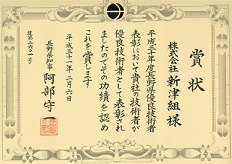 賞状
株式会社 新津組 様
平成三十年度長野県優良技術者
表彰において貴社の技術者が
優良技術者として表彰され
ましたのでその功績を認め
これを賞します
平成三十一年二月六日
長野県知事 阿部守一